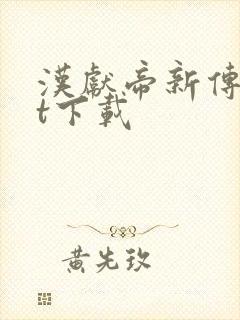 漢獻帝新傳
t下載
黃先玫